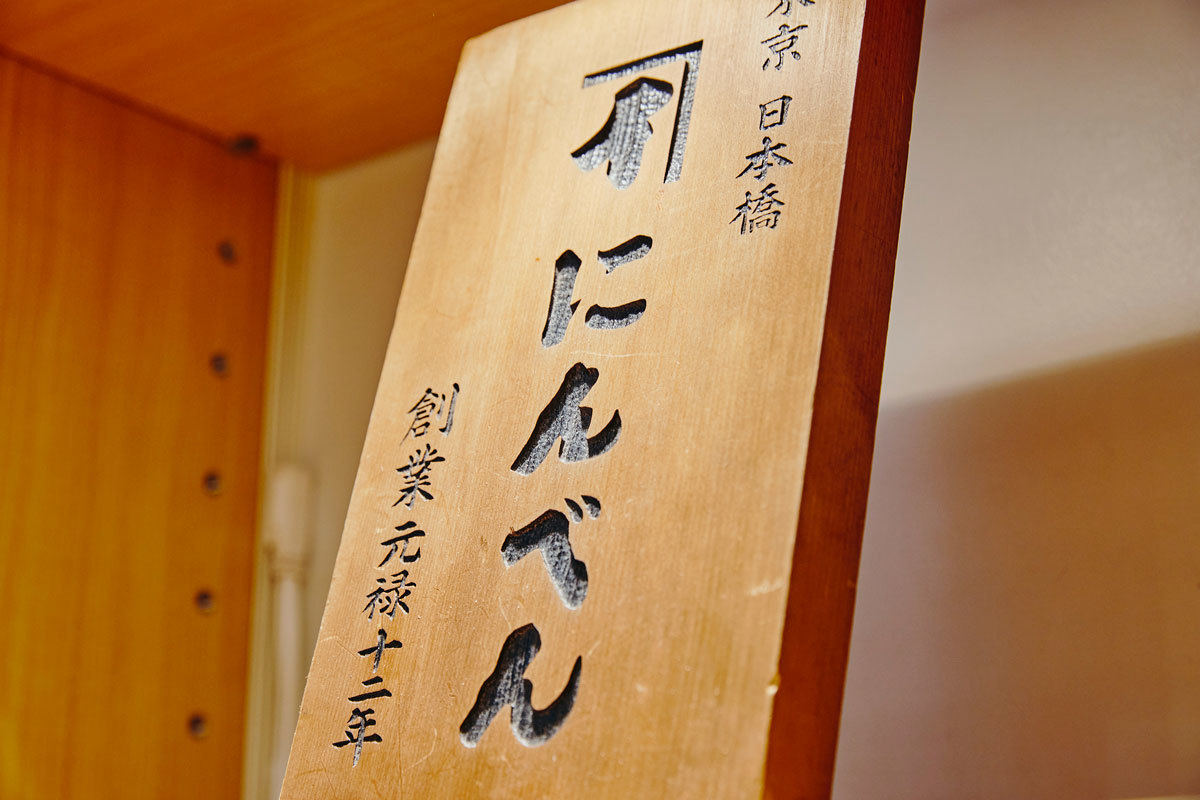 東京 日本橋
にんべん
創業元禄十二年